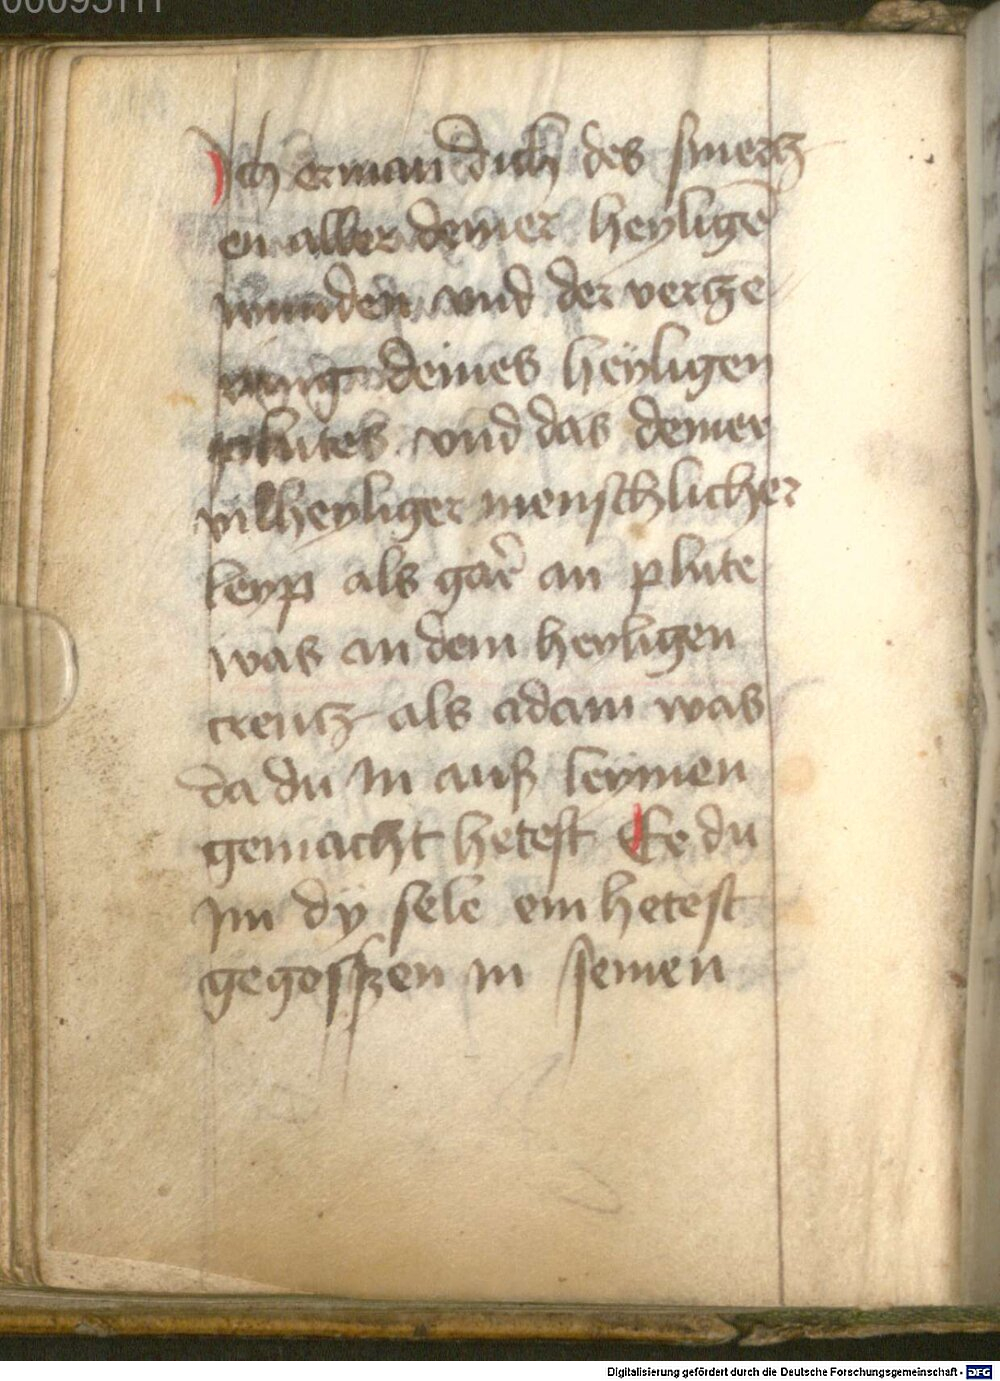 00095111
Ich erman dich des smertz
en aller deiner heylige͂
wunden vnd der vertze
rung deines heÿligen
plutes vnd das deiner
vilheyliger menschlicher
leyp als gar an plute
was an dem heyligen
creutz als adam was
da du in auß leymen
gemacht hetest Ee du
im dÿ sele ein hetest
gegosszen in seinen
Digitalisierung gefördert durch die Deutsche Forschungsgemeinschaft - DFG